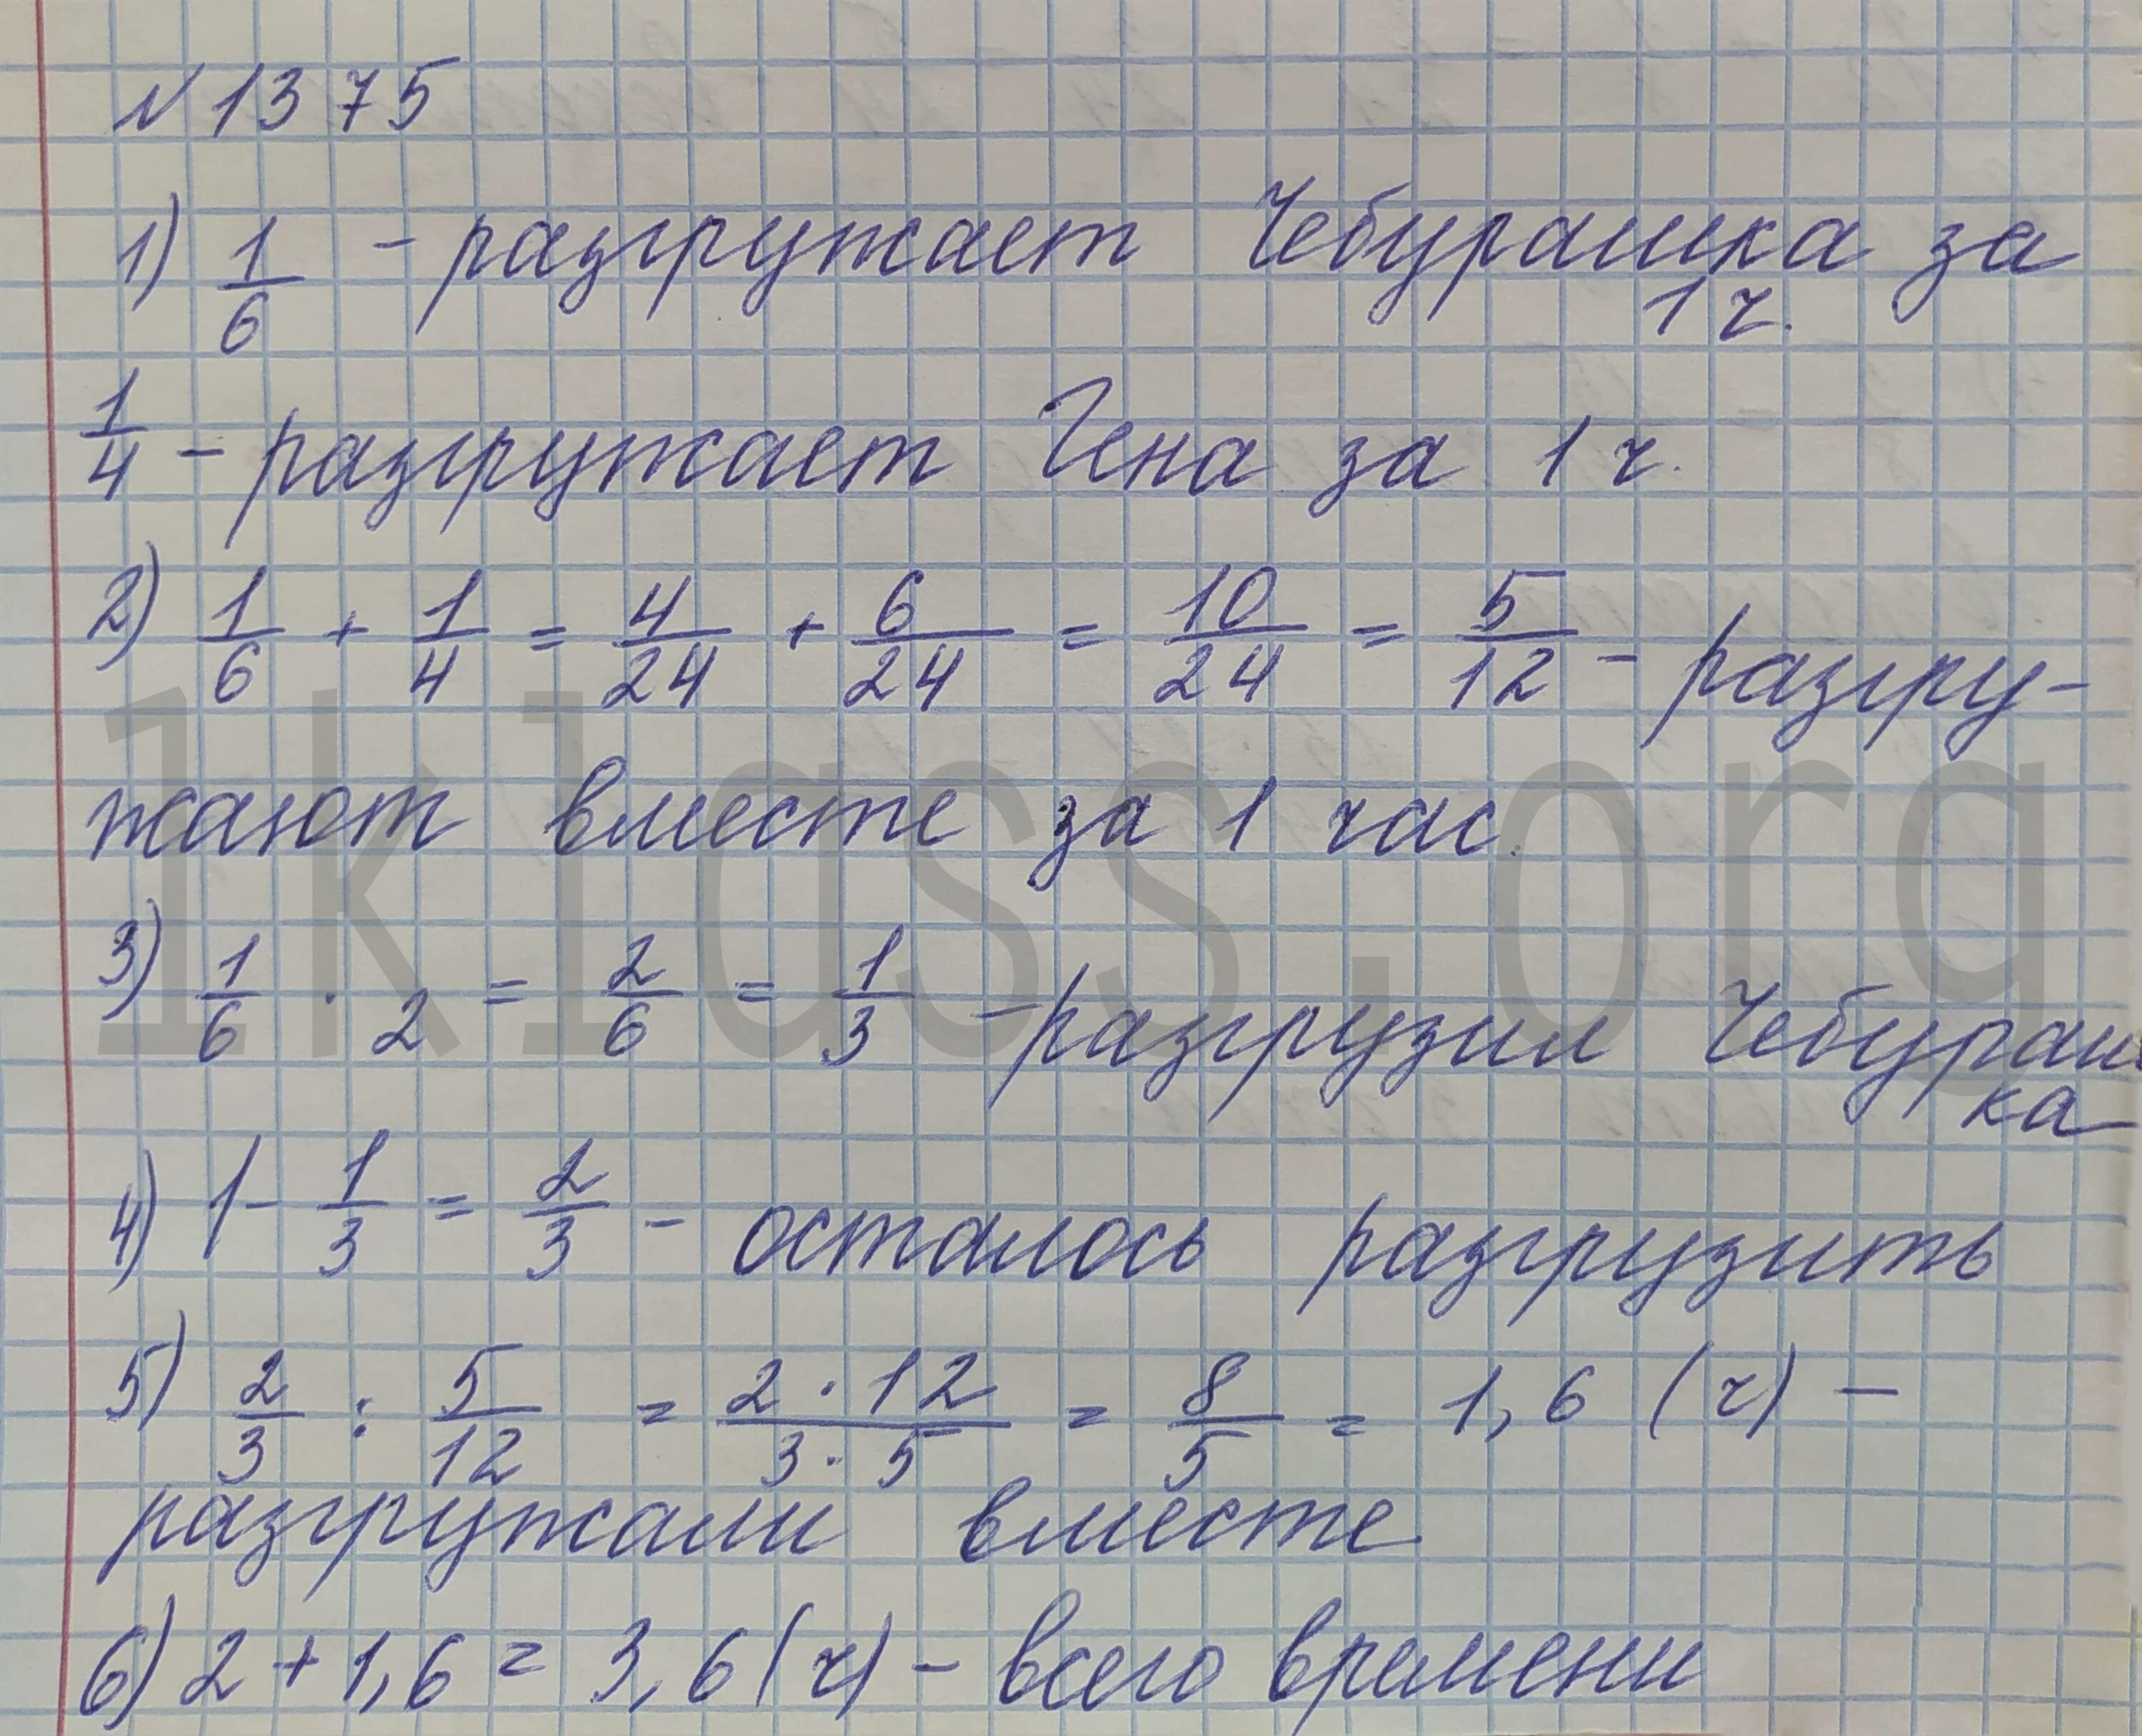 №1375
1) 1/6 - разгружает Чебурашка за
1 ч.
1/4 - разгружает Гена за 1 ч.
2) 1/6 + 1/4 = 4/24 + 6/24 = 10/24 = 5/12 - разгру-
жают вместе за 1 час.
3) 1/6 · 2 = 2/6 = 1/3 - разгрузил Чебураш
ка
4) 1 - 1/3 = 2/3 - осталось разгрузить
5) 2/3 : 5/12 = 2·12/3·5 = 8/5 = 1,6 (ч) -
разгружали вместе
6) 2 + 1,6 = 3,6 (ч) - всего времени
1klass.org